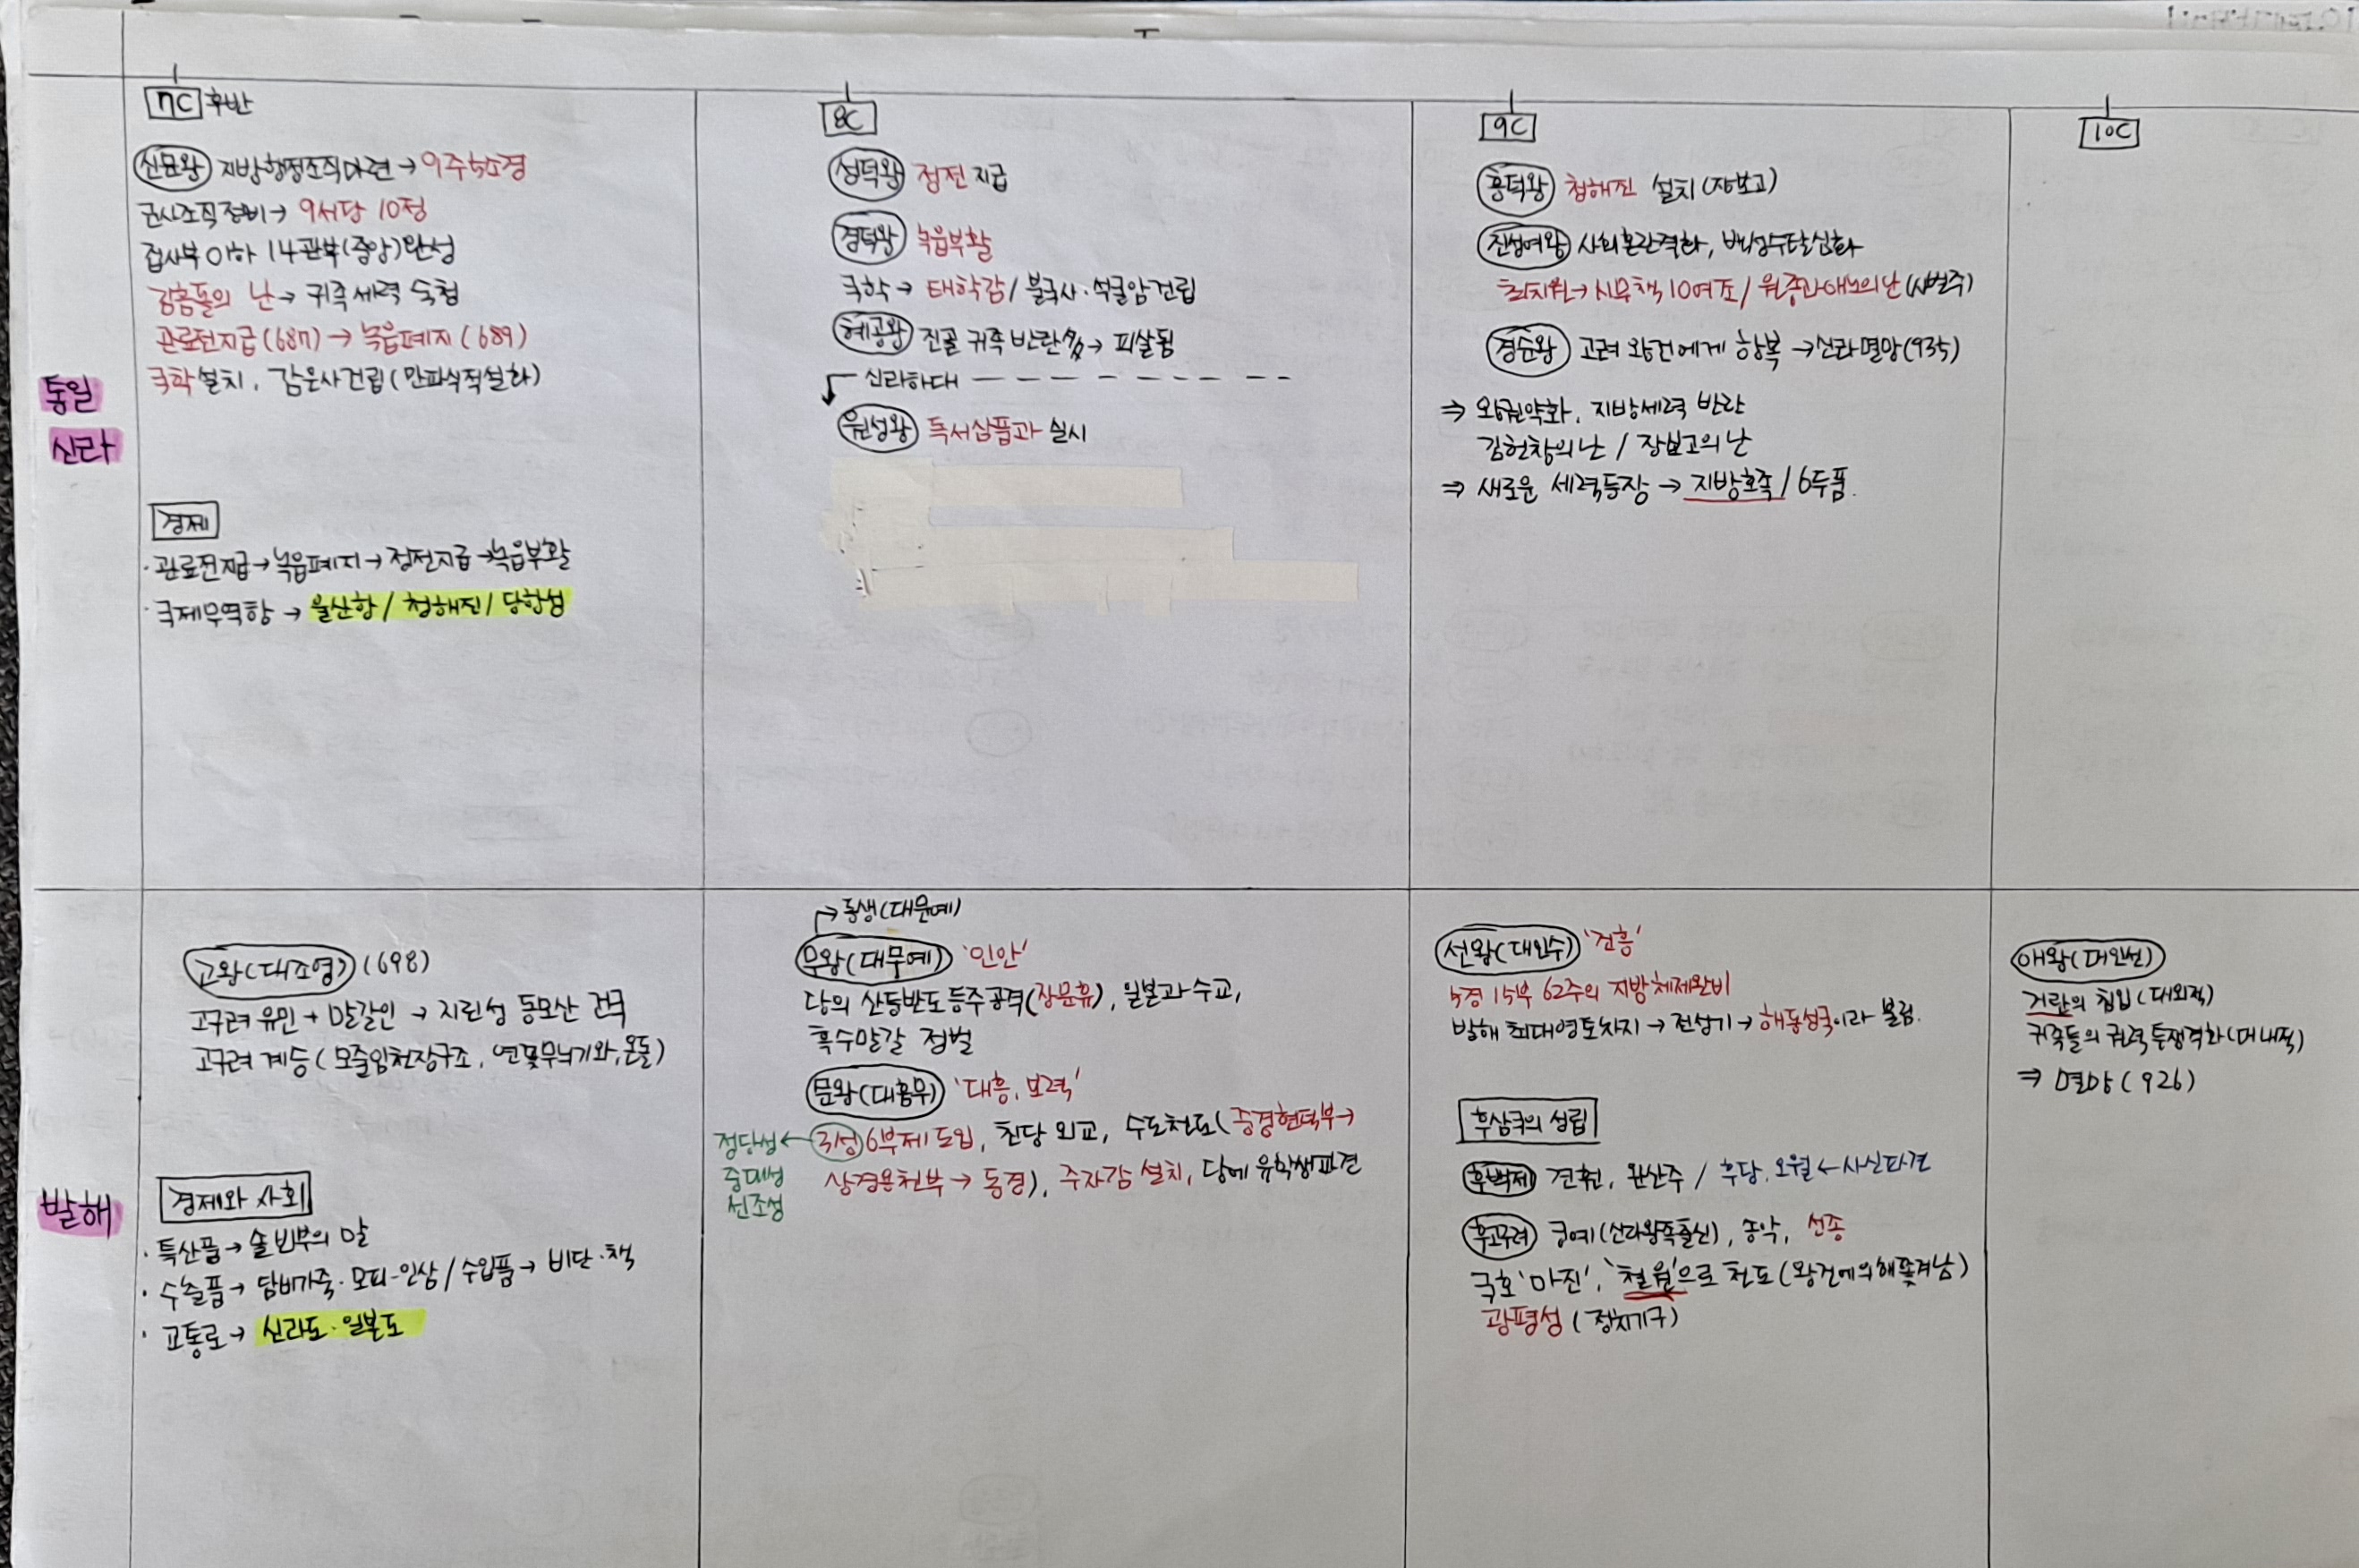 7C 후반
신문왕 지방행정조직마련 → 9주5소경
군사조직정비 → 9서당 10정
집사부 이하 14관부(중앙)완성
김흠돌의 난 → 귀족세력 숙청
관료전지급(687) → 녹읍폐지(689)
국학설치, 감은사건립(만파식적설화)
통일
신라
경제
· 관료전지급 → 녹읍폐지 → 정전지급 → 녹읍부활
· 국제무역항 → 울산항 / 청해진 / 당항성
8C
성덕왕 정전 지급
경덕왕 녹읍부활
국학 → 태학감 / 불국사·석굴암건립
혜공왕 진골 귀족 반란 多 → 피살됨
신라하대
원성왕 독서삼품과 실시
9C
흥덕왕 청해진 설치(장보고)
진성여왕 사회혼란격화, 백성수탈심화
최치원 → 시무책 10여조 / 원종과애노의난(사벌주)
경순왕 고려 왕건에게 항복 → 신라멸망(935)
⇒ 왕권약화, 지방세력 반란
김헌창의 난 / 장보고의 난
⇒ 새로운 세력등장 → 지방호족 / 6두품.
10C
발해
고왕(대조영) (698)
고구려 유민 + 말갈인 → 지린성 동모산 건국
고구려 계승(모줄임천장구조, 연꽃무늬기와, 온돌)
경제와 사회
· 특산품 → 솔빈부의 말
· 수출품 → 담비가죽·모피·인삼 / 수입품 → 비단·책
· 교통로 → 신라도·일본도
→ 동생(대문예)
무왕(대무예) '인안'
당의 산동반도 등주공격(장문휴), 일본과 수교,
흑수말갈 정벌
문왕(대흠무) '대흥, 보력'
3성 6부제 도입, 친당 외교, 수도천도(중경현덕부 →
상경용천부 → 동경), 주자감 설치, 당에 유학생파견
정당성 ←
중대성
선조성
선왕(대인수) '건흥'
5경 15부 62주의 지방체제완비
발해 최대영토차지 → 전성기 → 해동성국이라 불림.
후삼국의 성립
후백제 견훤, 완산주 / 후당, 오월 ← 사신파견
후고구려 궁예(신라왕족출신), 송악, 선종
국호 '마진', '철원'으로 천도(왕건에의해쫓겨남)
광평성 (정치기구)
애왕(대인선)
거란의 침입(대외적)
귀족들의 권력투쟁격화(대내적)
⇒ 멸망(926)